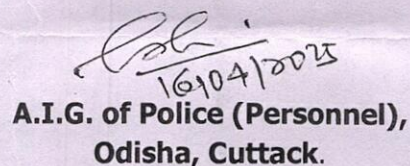 16/04/2025
A.I.G. of Police (Personnel),
Odisha, Cuttack.